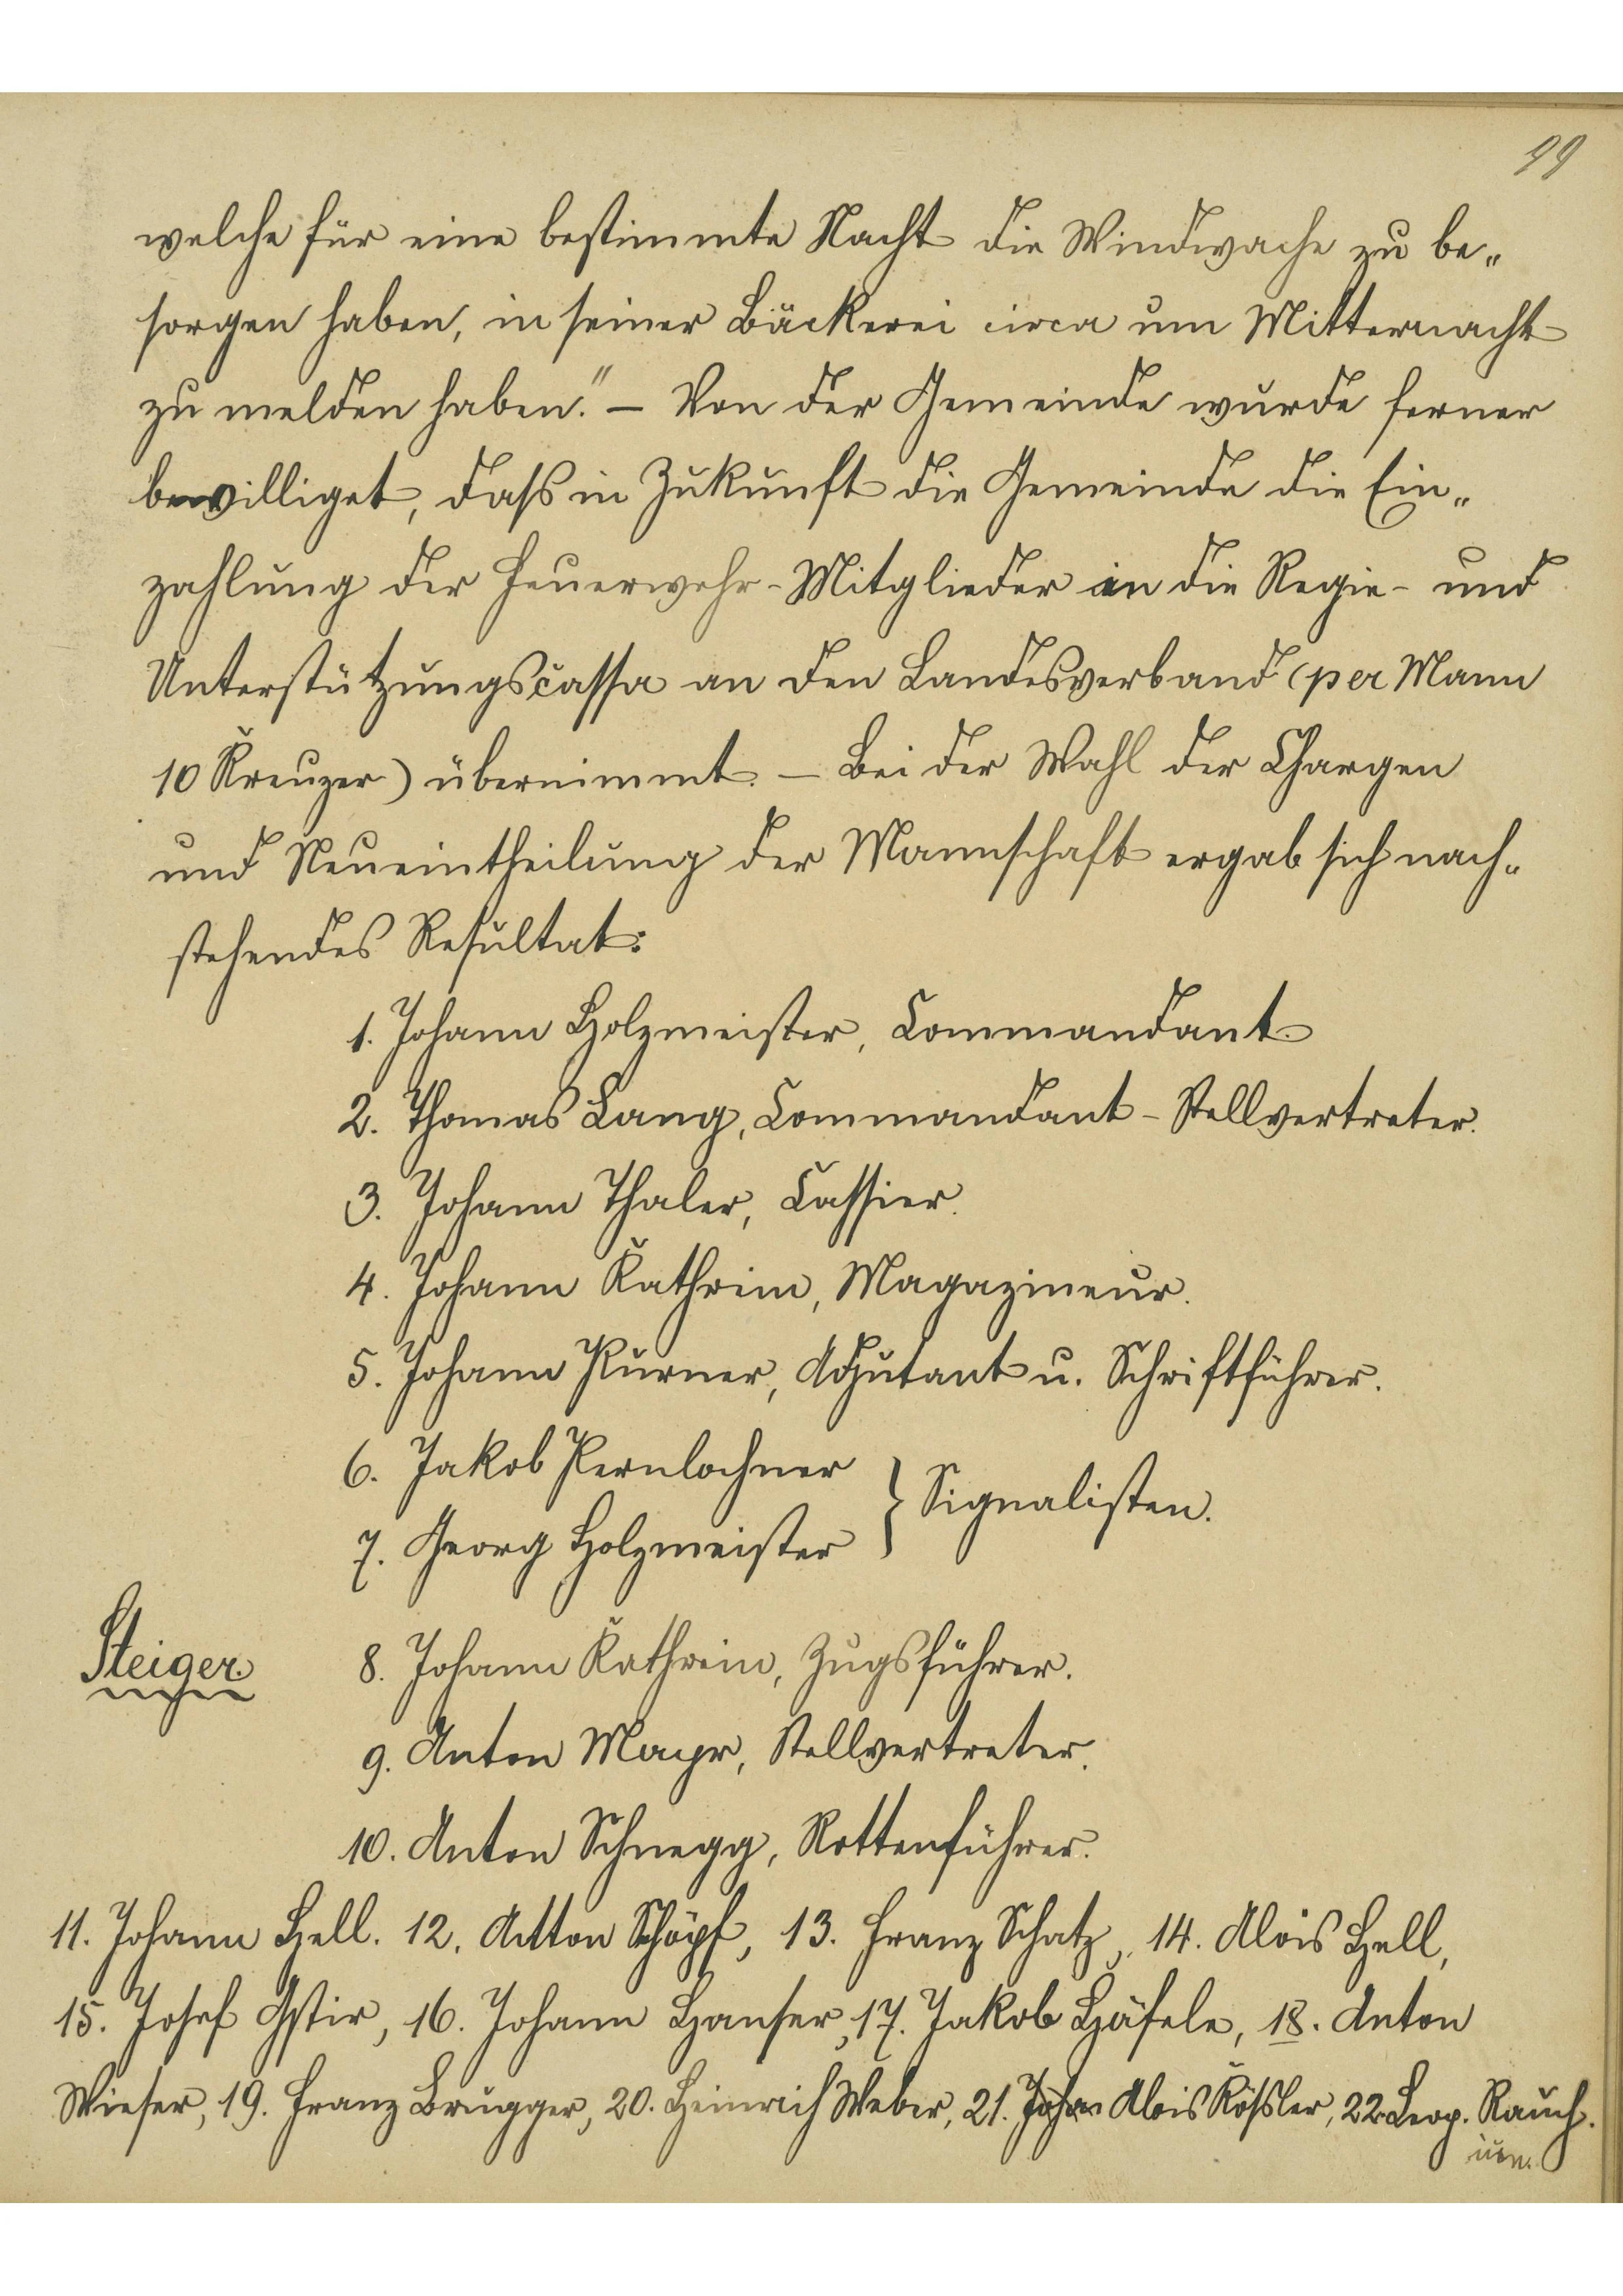 99
welche für eine bestimmte Nacht die Windwache zu be„
sorgen haben, in seiner Bäckerei circa um Mitternacht
zu melden haben." – Von der Gemeinde wurde ferner
bewilliget, daß in Zukunft die Gemeinde die Ein„
zahlung der Feuerwehr-Mitglieder in die Regie- und
Unterstützungscassa an den Landesverband (per Mann
10 Kreuzer) übernimmt. – Bei der Wahl der Chargen
und Neueintheilung der Mannschaft ergab sich nach„
stehendes Resultat:
1. Johann Holzmeister, Commandant.
2. Thomas Lang, Commandant-Stellvertreter.
3. Johann Thaler, Cassier.
4. Johann Kathrein, Magazineur.
5. Johann Purner, Adjutant u. Schriftführer.
6. Jakob Pernlochner
7. Georg Holzmeister } Signalisten.
Steiger. 8. Johann Kathrein, Zugsführer.
9. Anton Mayr, Stellvertreter.
10. Anton Schnegg, Rottenführer.
11. Johann Hell. 12. Anton Schöpf, 13. Franz Schatz, 14. Alois Hell,
15. Josef Gstir, 16. Johann Hanser, 17. Jakob Häfele, 18. Anton
Wieser, 19. Franz Brugger, 20. Heinrich Weber, 21. Johan Alois Rößler, 22. Leop. Rauch.